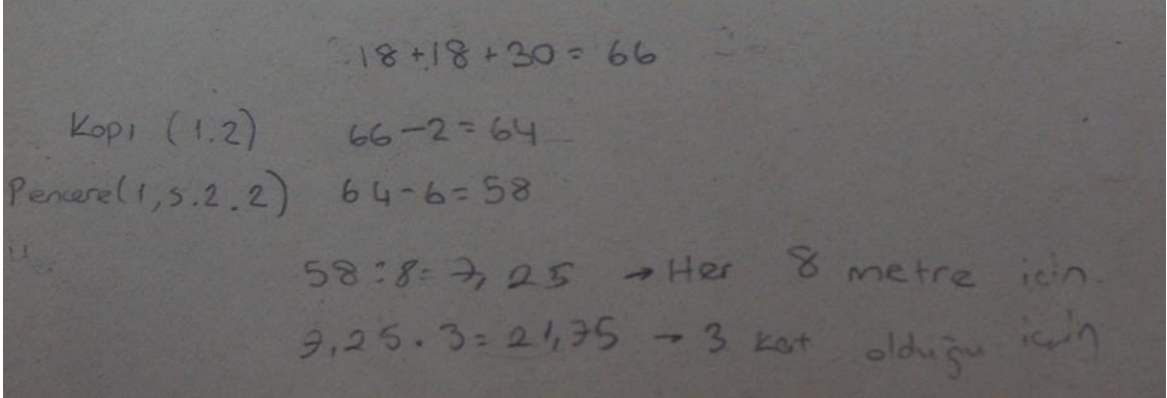 18+18+30=66
Kapı (1.2) 66-2=64
Pencere(1,5.2.2) 64-6=58
"
58:8=7,25 → Her 8 metre için.
7,25.3=21,75 → 3 kat olduğu için